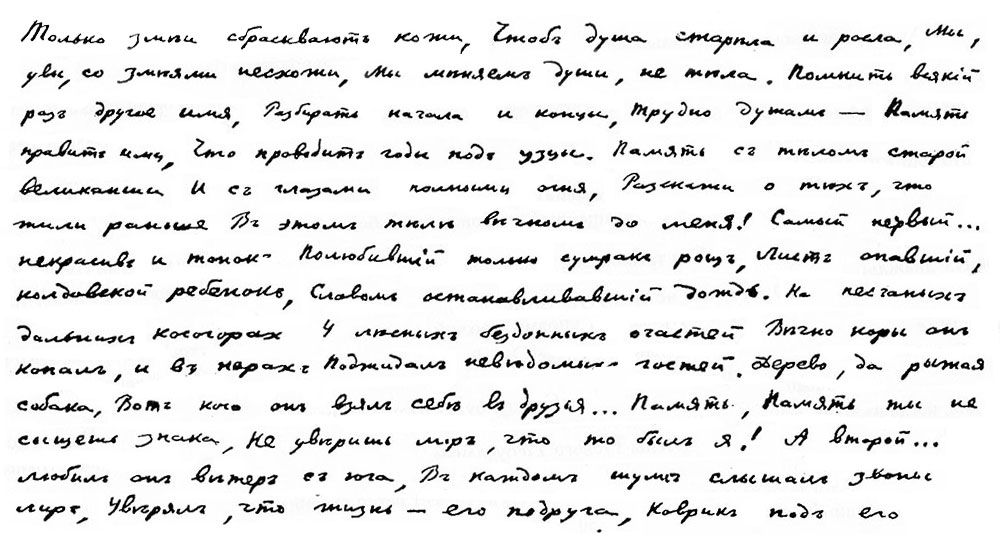 Только змѣи сбрасываютъ кожи, Чтобъ душа старѣла и росла, Мы,
увы, со змѣями несхожи, Мы мѣняемъ души, не тѣла. Помнитъ всякій
разъ другое имя, Разбирать начала и концы, Трудно думать — Память
правитъ ими, Что проводитъ годы подъ уздцы. Память съ тѣломъ старой
великанши И съ глазами полными огня, Разскажи о тѣхъ, что
жили раньше Въ этомъ тѣлѣ вѣчномъ до меня! Самый первый...
некрасивъ и тонокъ Полюбившій только сумракъ рощъ, Листъ опавшій,
колдовской ребенокъ, Словомъ останавливавшій дождь. На песчаныхъ
дальнихъ косогорахъ У лѣсныхъ бездонныхъ очастей Вѣчно норы онъ
копалъ, и въ норахъ Поджидалъ невѣдомыхъ гостей. Дерево, да рыжая
собака, Вотъ кого онъ взялъ себѣ въ друзья... Память, Память ты не
сыщешь знака, Не увѣришь міръ, что то былъ я! А второй...
любилъ онъ вѣтеръ съ юга, Въ каждомъ шумѣ слышалъ звоны
лиръ, Увѣрялъ, что жизнь — его подруга, Коврикъ подъ его